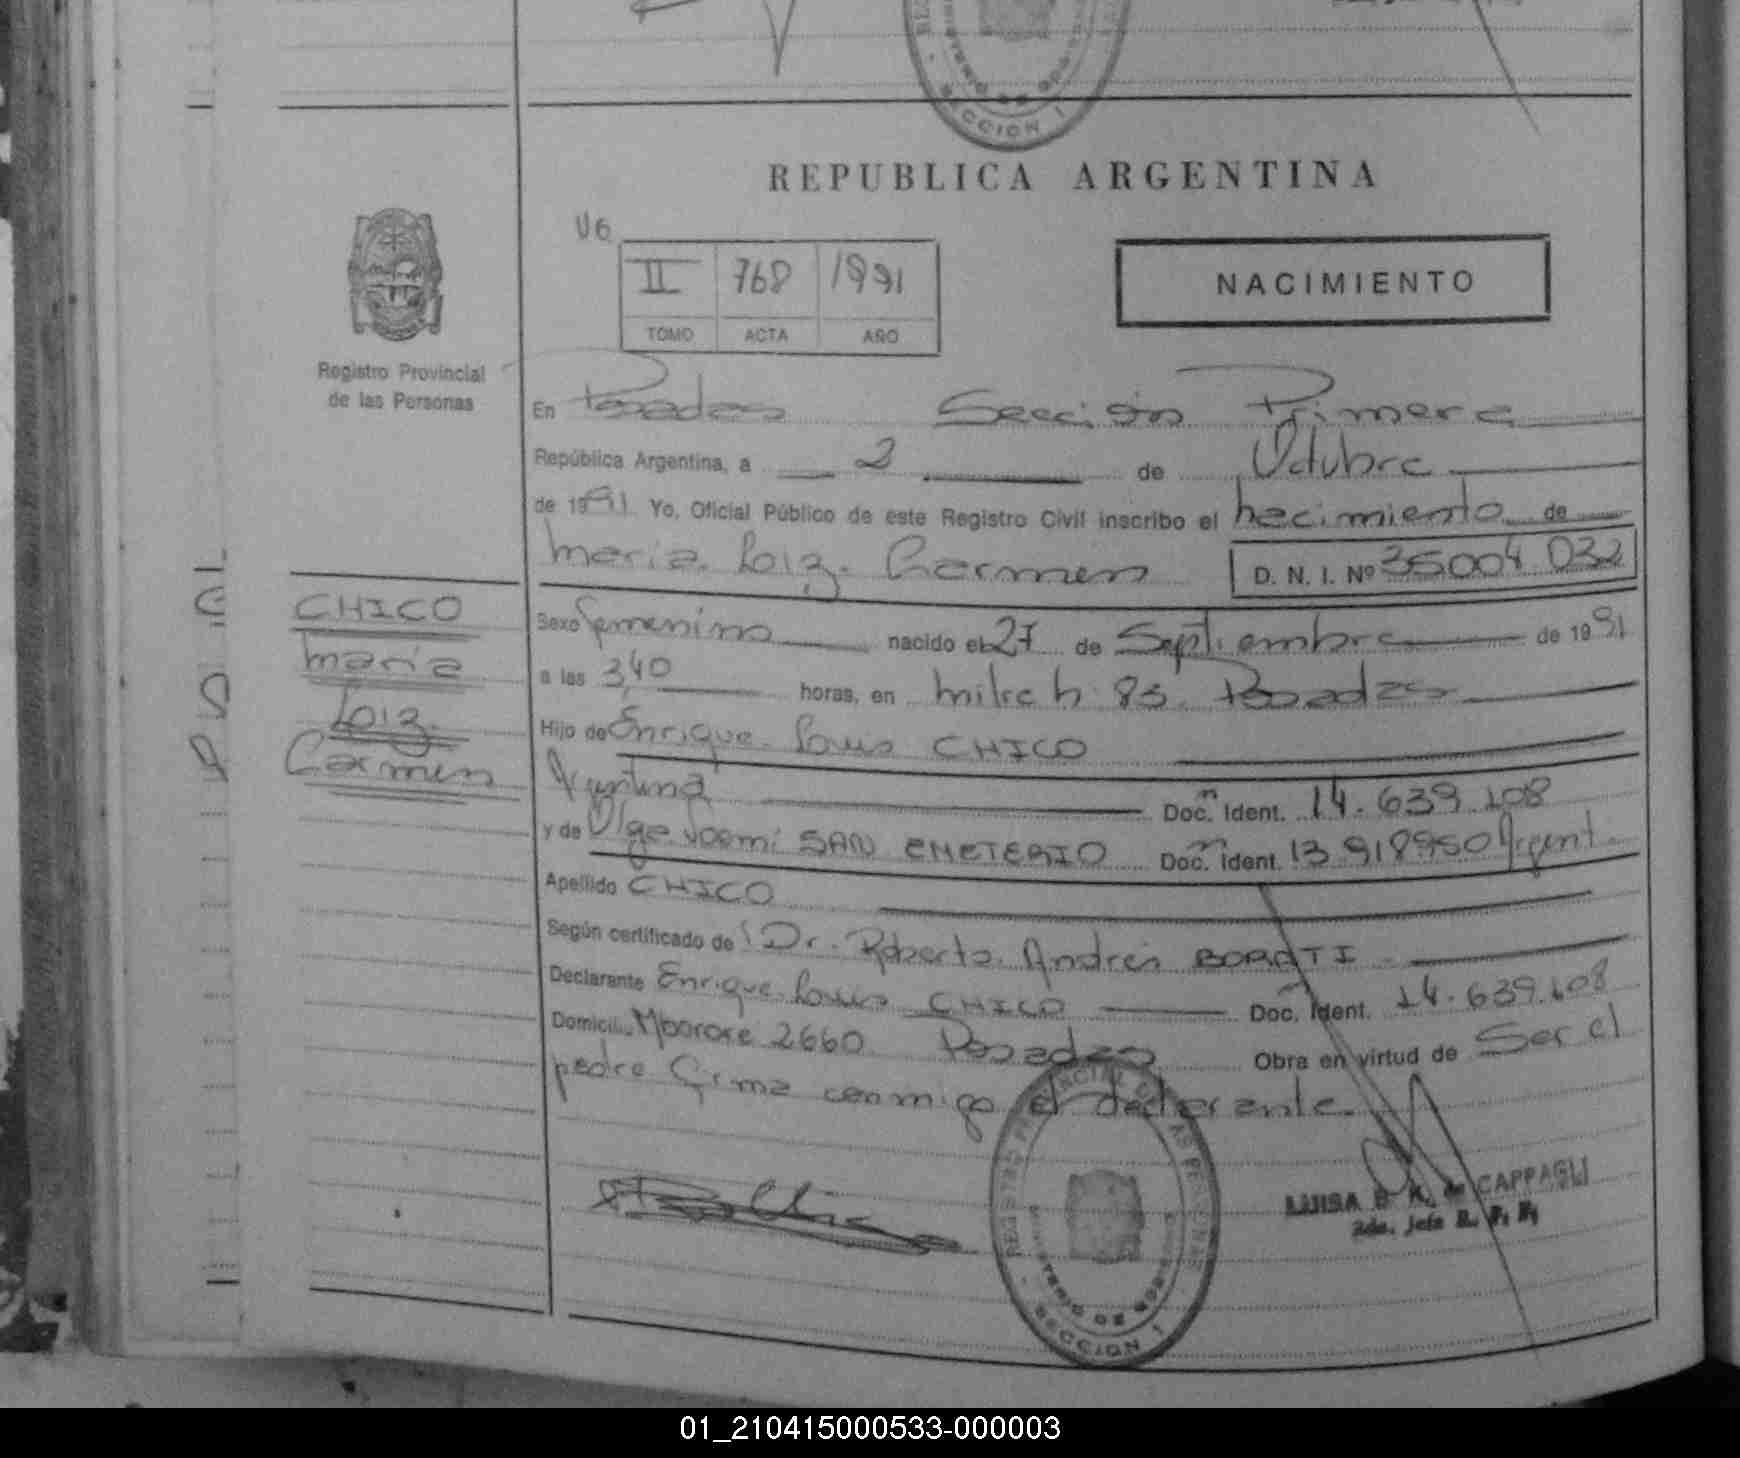 SECCION I
REPUBLICA ARGENTINA
U6
II 768 1991
TOMO ACTA AÑO
NACIMIENTO
Registro Provincial
de las Personas
En Posadas Sección Primera
República Argentina, a 2 de Octubre
de 1991 Yo, Oficial Público de este Registro Civil inscribo el nacimiento de
María Luiz Carmen D. N. I. Nº 35004 032
CHICO
María
Luiz
Carmen
Sexo femenino nacido el 27 de Septiembre de 1991
a las 3,40 horas, en 83 Posadas
Hijo de Enrique Louis CHICO
Argentina Doc. Ident. 14.639.108
y de Olga Noemi SAN EMETERIO Doc. Ident. 13 918950 Argent.
Apellido CHICO
Según certificado de Dr. Roberto Andrés
Declarante Enrique Louis CHICO Doc. Ident. 14.639.108
Domicil. 2660 Posadas Obra en virtud de Ser el
padre Firma conmigo el declarante.
REGISTRO PROVINCIAL DE LAS PERSONAS
MINISTERIO DE GOBIERNO
SECCION I
LUISA de CAPPAGLI
2da. Jefe R. P. P.
01_210415000533-000003